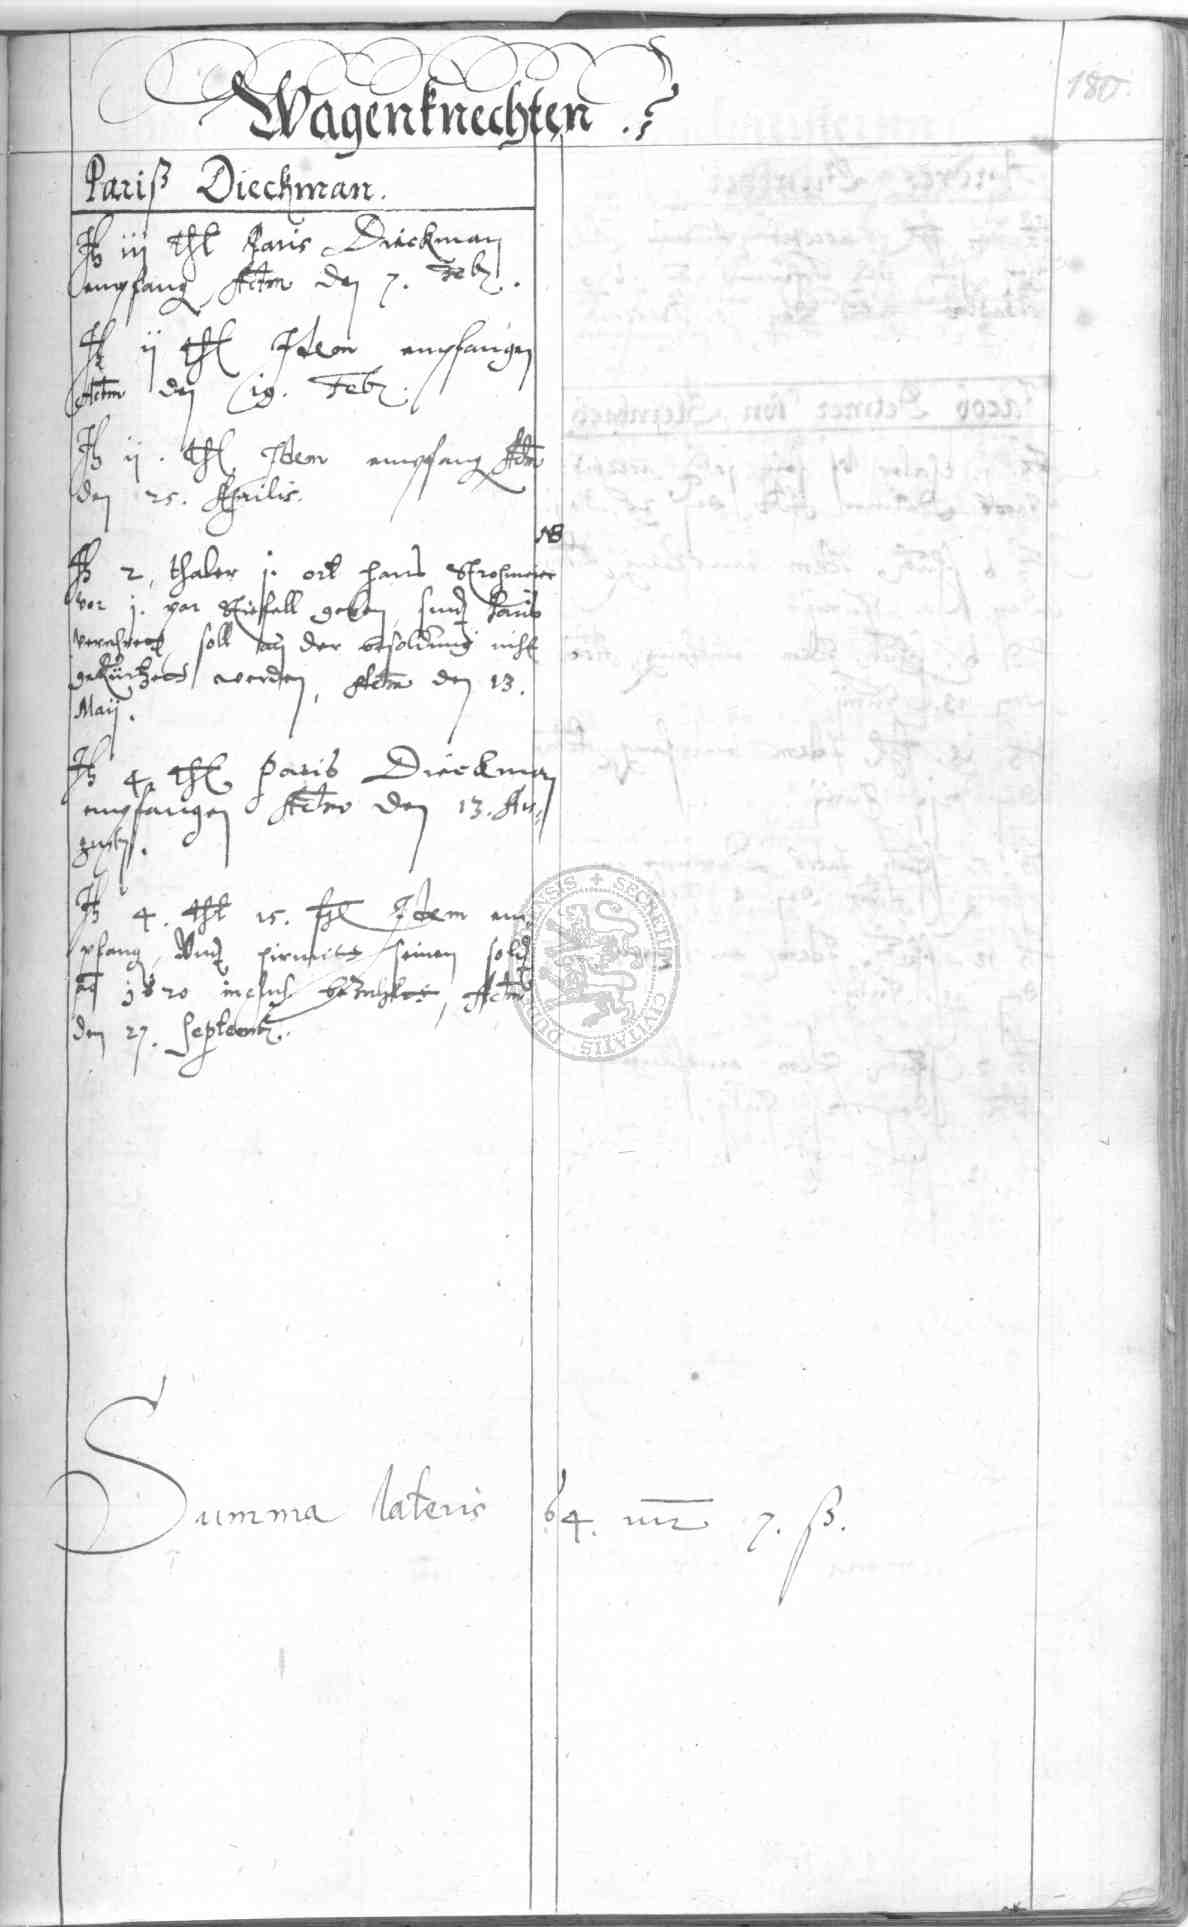 180.
Wagenknechten.
Pariß Dieckman.
iij thl Paris Dieckman
empfang Actm den 7. Feb.
ij thl Item empfangen
Actm den 19. Feb.
ij. thl Item empfang Actm
den 25. Aprilis.
NB
2, thaler j. ort hans Strohmeier
vor j. par Stieffell geben, sind Paris
verehrett, soll an der besoldung nicht
gekürtzet werden, Actm den 13.
Maij.
4 thl Paris Dieckman
empfangen Actm den 13. Au=
gusti.
4. thl 15. ßl Item em=
pfang, Und hirmitt seinen sold
1620 inclus. bezahlet, Actm
den 27. Septemb.
SECRETUM CIVITATIS
Summa lateris 64. mr 7. ß.